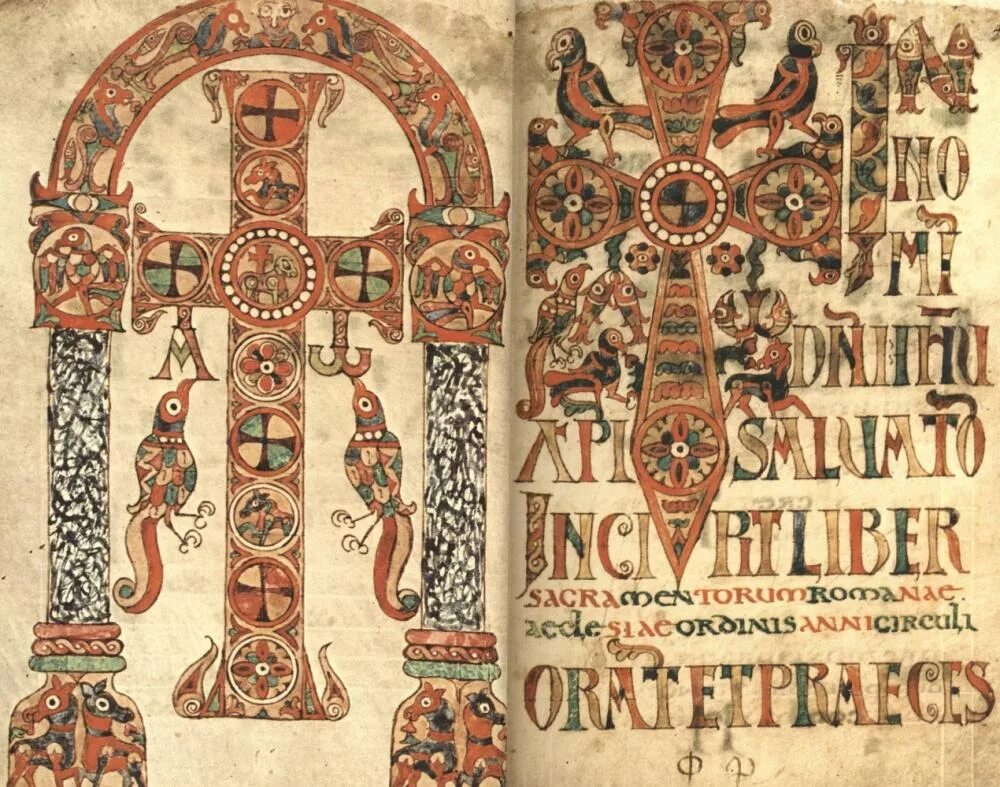 A ω
IN
NO
MĪ
DÑI IHŪ
XPI SALUATŌ
INCIPIT LIBER
SACRAMENTORUM ROMANAE
AECLESIAE ORDINIS ANNI CIRCULI
ORAT̄ ET PRAECES